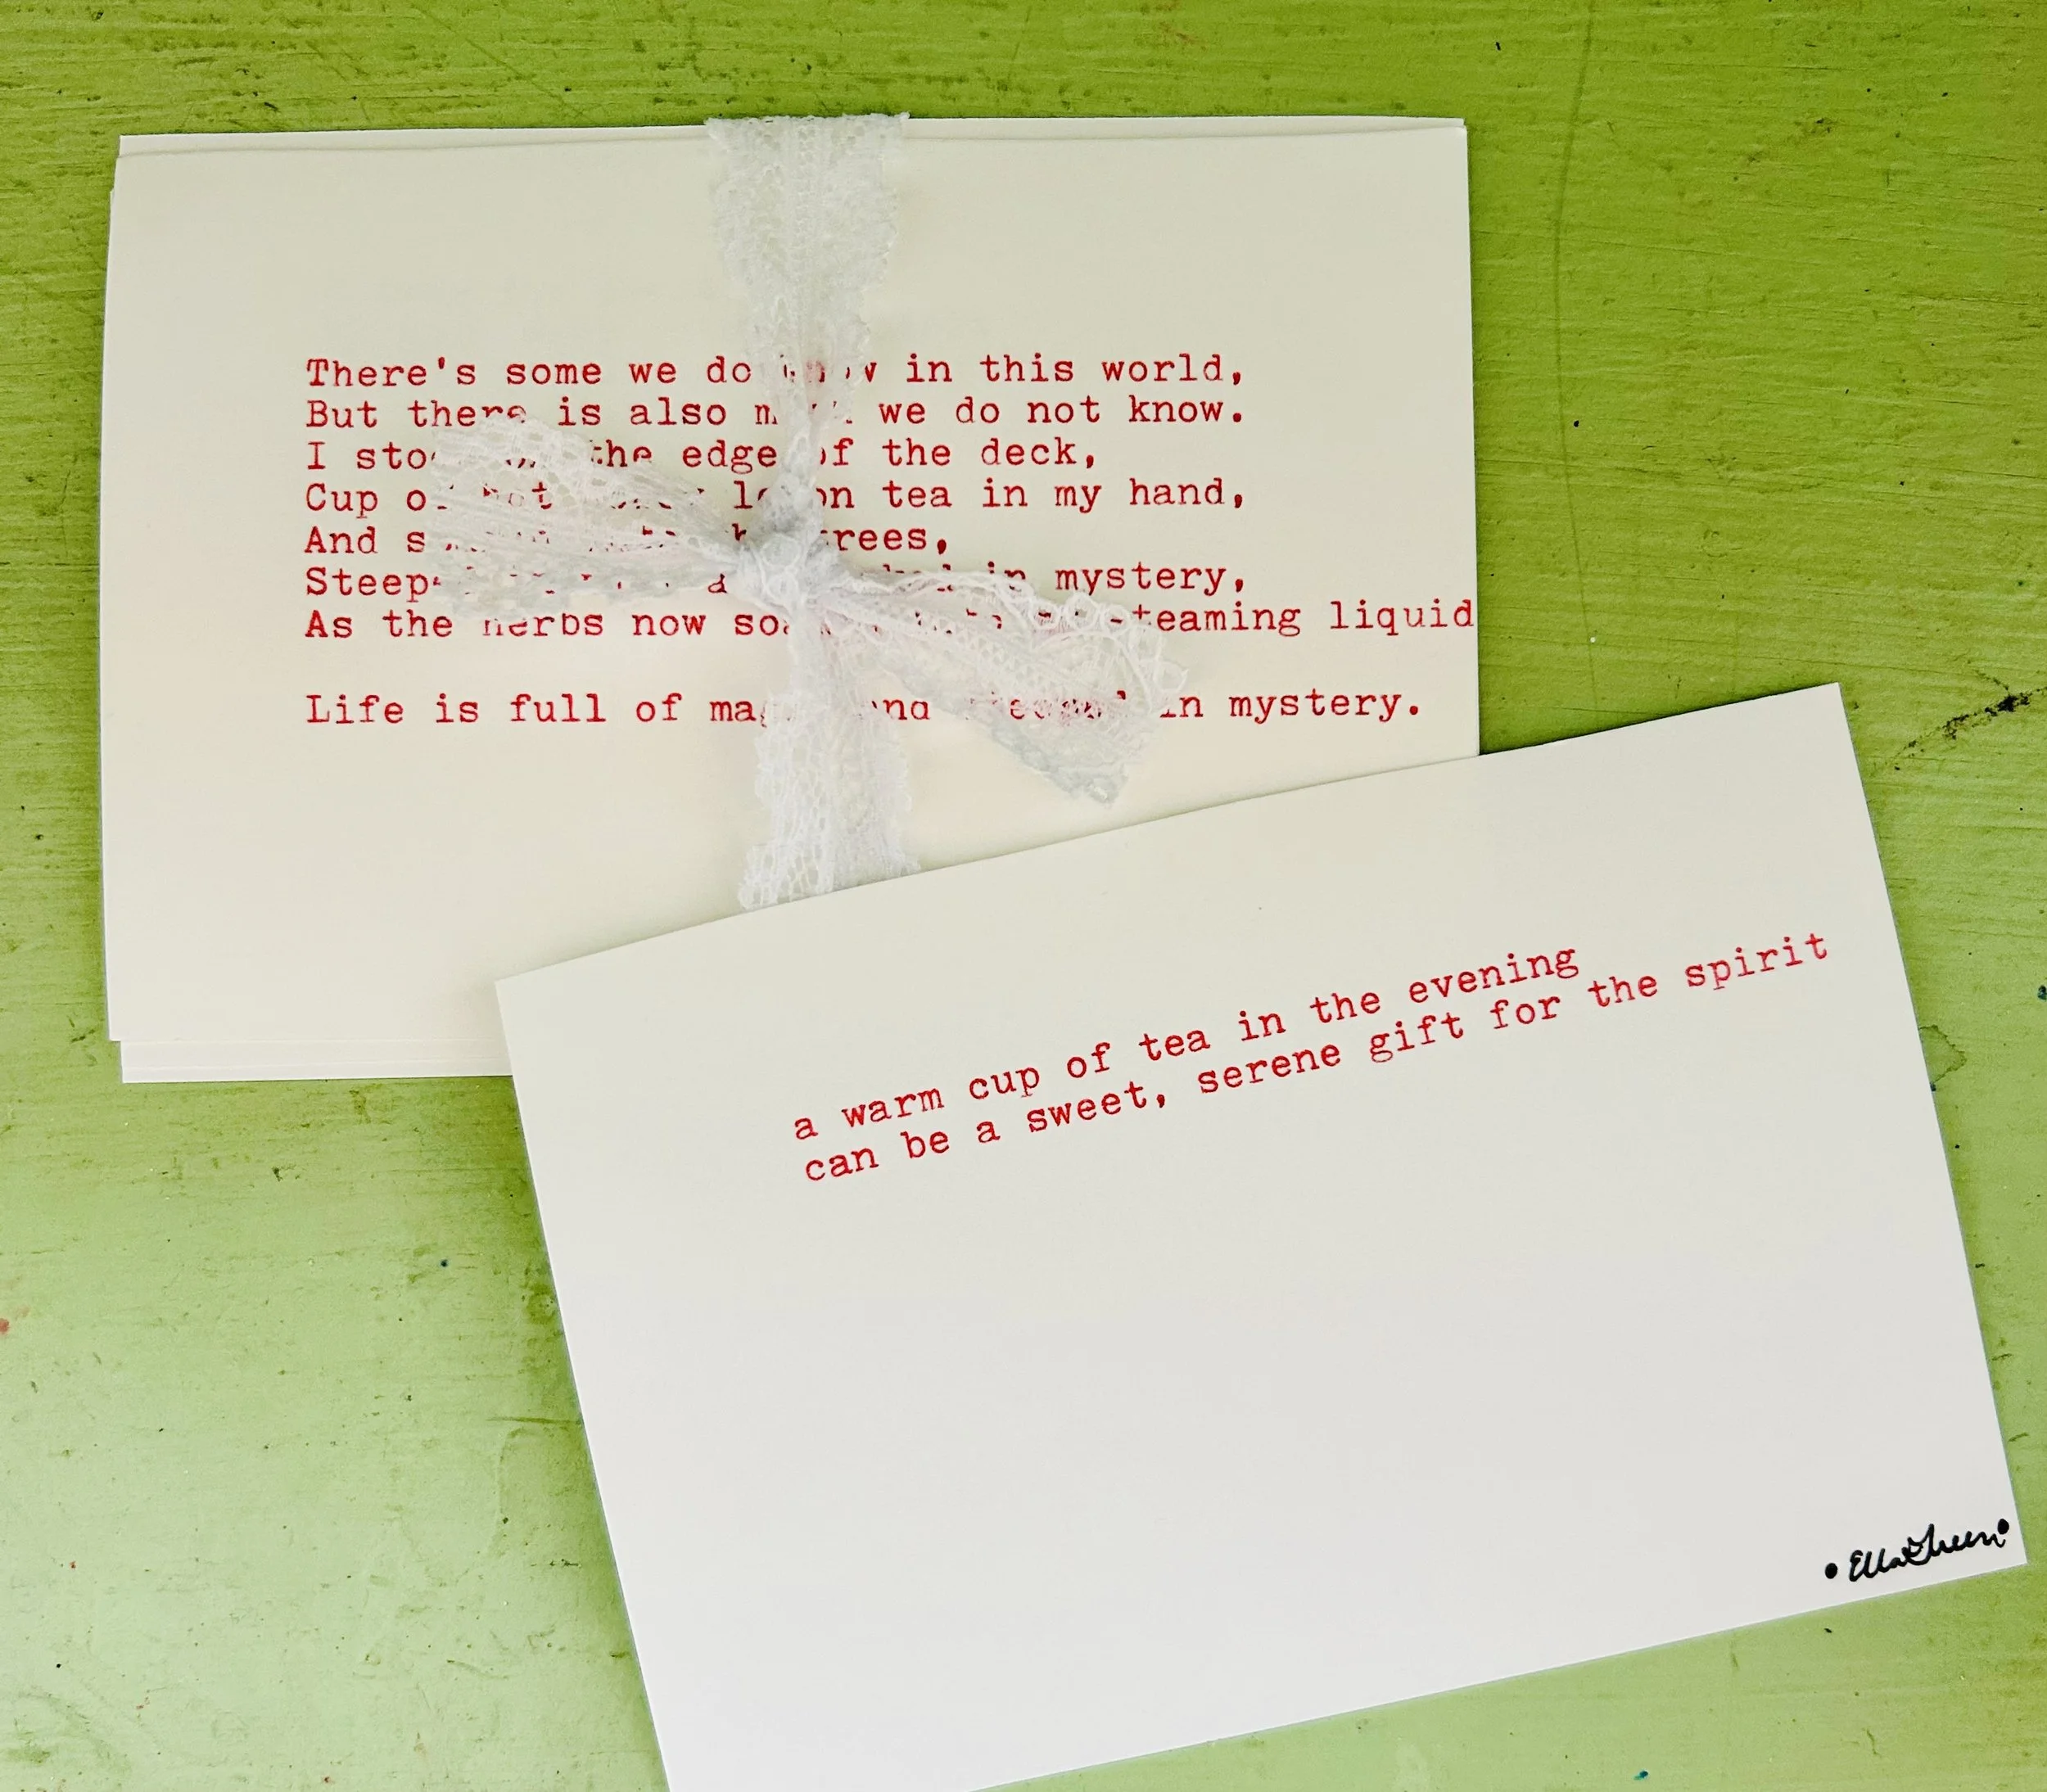 There's some we do know in this world,
But there is also much we do not know.
I stood the edge of the deck,
Cup of hot lemon tea in my hand,
And trees,
in mystery,
As the herbs now steaming liquid
Life is full of magic and steeped in mystery.
a warm cup of tea in the evening
can be a sweet, serene gift for the spirit
EllaGreen